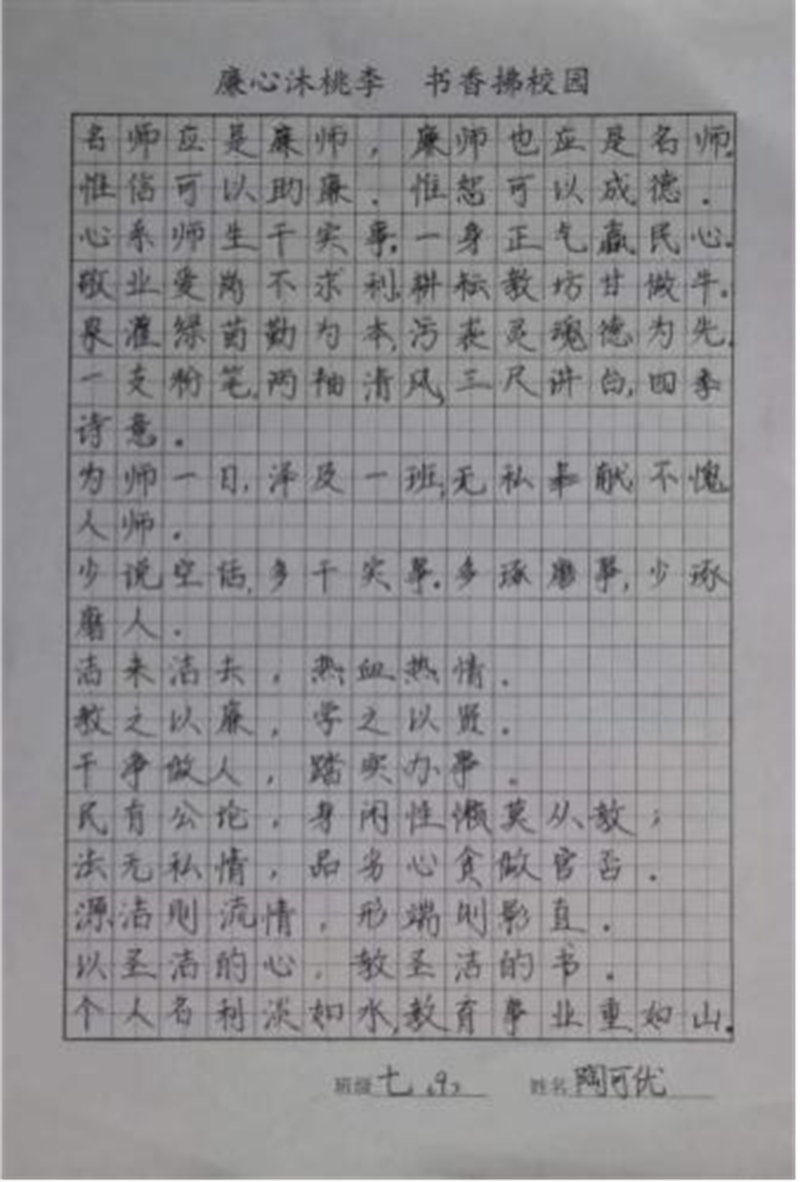 廉心沐桃李 书香拂校园
名师应是廉师，廉师也应是名师。
惟信可以助廉．惟恕可以成德．
心系师生干实事。一身正气赢民心。
敬业爱岗不求利，耕耘教坊甘做牛。
泉灌绿苗勤为本，污丧灵魂德为先。
一支粉笔，两袖清风，三尺讲台，四季
诗意．
为师一日，泽及一班，无私奉献，不愧
人师．
少说空话，多干实事。多琢磨事，少琢
磨人．
洁来洁去，热血热情．
教之以廉，学之以贤．
干净做人，踏实办事．
民有公论，身闲性懒莫从教；
法无私情，品劣心贪做官否．
源洁则流情，形端则影直．
以圣洁的心．教圣洁的书．
个人名利淡如水，教育事业重如山。
班级 七（9） 姓名 陶可优